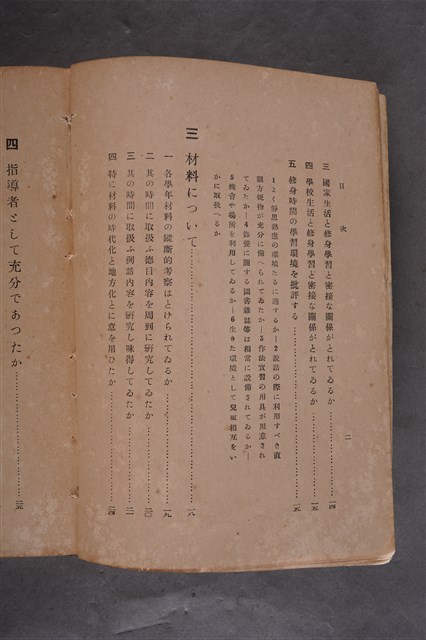 目次
二
三 國家生活と修身學習と密接な關係がとれてゐるか……一四
四 學校生活と修身學習と密接な關係がとれてゐるか……一五
五 修身時間の學習環境を批評する……一五
1よく靜思熟慮の環境たるに適するか―2說話の際に利用すべき直
觀方便物が充分に備へられてゐたか―3作法實習の用具が用意され
てゐたか―4修養に關する圖書雜誌等は相當に設備されてゐるか―
5機會や場所を利用してゐるか―6生きた環境として兒童相互をい
かに取扱へるか
三 材料について……一八
一 各學年材料の縱斷的考察はとげられてゐるか……一九
二 其の時間に取扱ふ德目內容を周到に硏究してゐたか……二〇
三 其の時間に取扱ふ例話內容を硏究し味得してゐたか……二一
四 特に材料の時代化と地方化とに意を用ひたか……二四
四 指導者として充分であつたか……二五